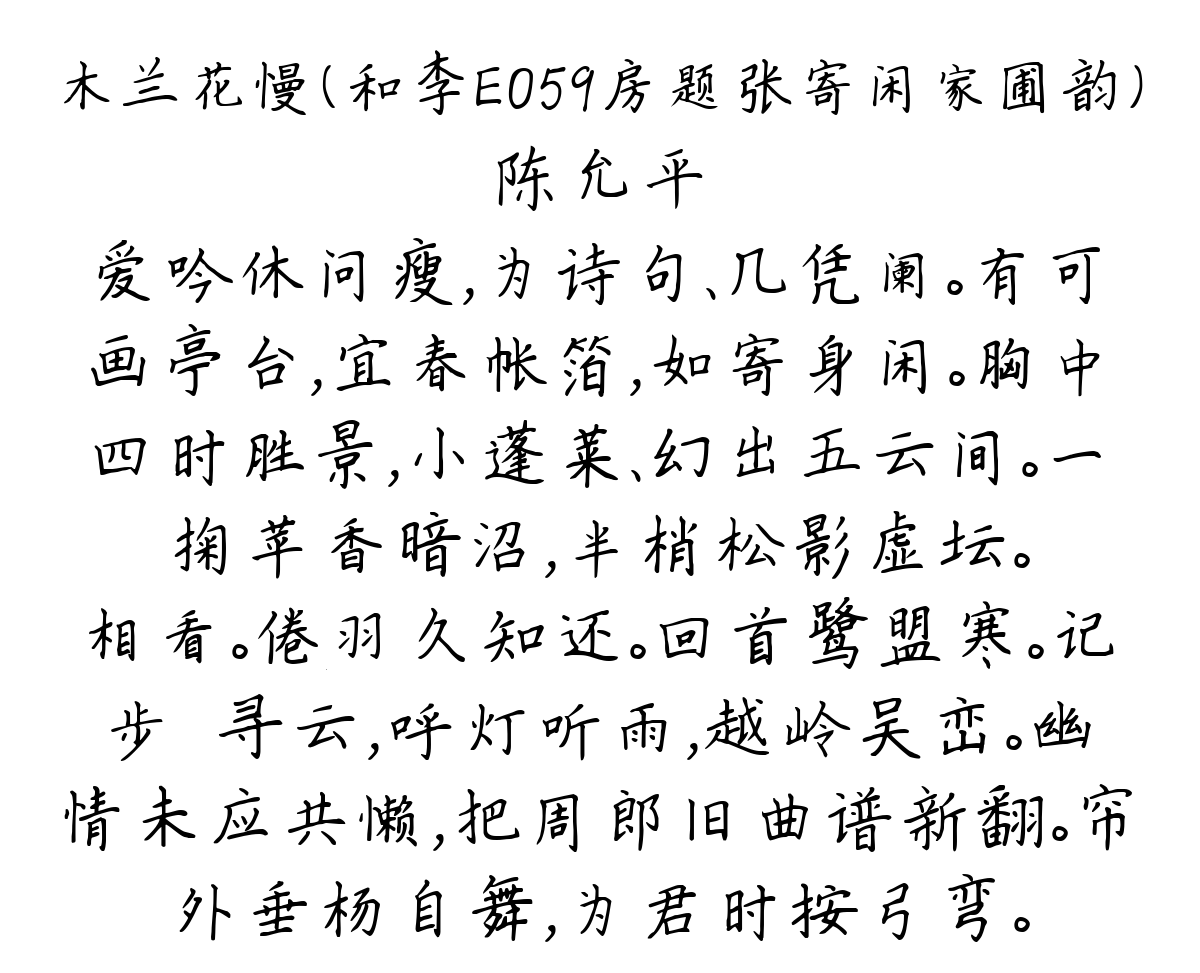 木兰花慢(和李E059房题张寄闲家圃韵)
陈允平
爱吟休问瘦,为诗句、几凭阑。有可
画亭台,宜春帐箔,如寄身闲。胸中
四时胜景,小蓬莱、幻出五云间。一
掬苹香暗沼,半梢松影虚坛。
相看。倦羽久知还。回首鹭盟寒。记
步 寻云,呼灯听雨,越岭吴峦。幽
情未应共懒,把周郎旧曲谱新翻。帘
外垂杨自舞,为君时按弓弯。